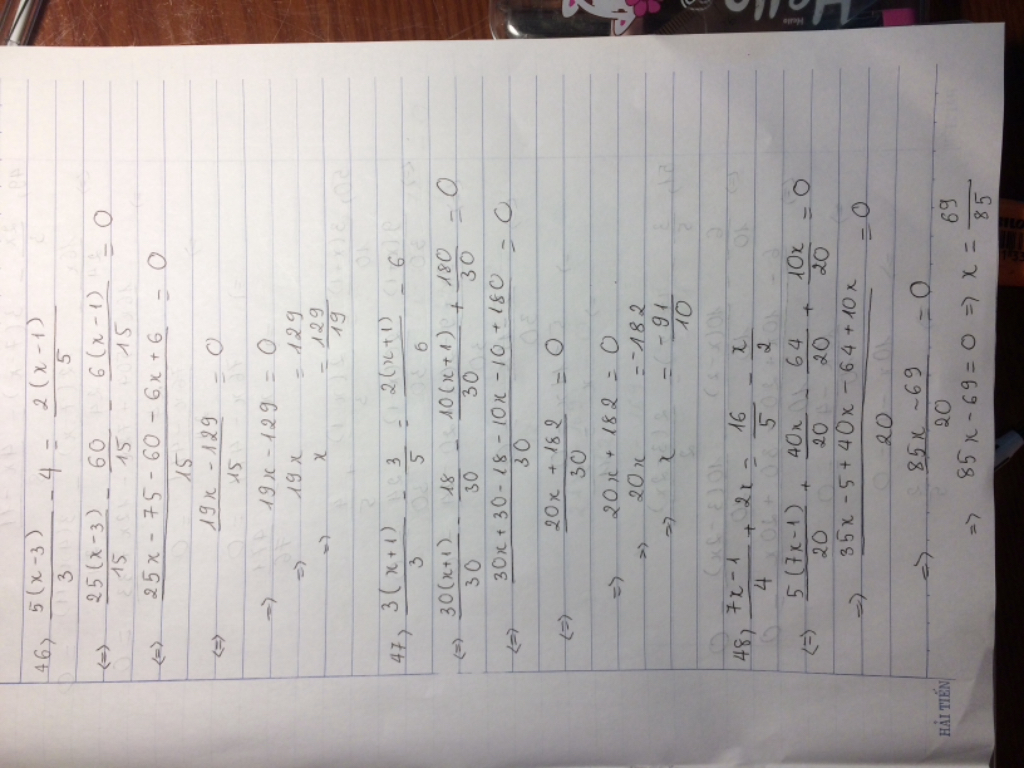 46, 5(x-3)/3 - 4 = 2(x-1)/5
(=) 25(x-3)/15 - 60/15 - 6(x-1)/15 = 0
(=) (25x - 75 - 60 - 6x + 6)/15 = 0
(=) (19x - 129)/15 = 0
=) 19x - 129 = 0
=) 19x = 129
=) x = 129/19
47, 3(x+1)/3 - 3/5 = 2(x+1)/6 - 6
(=) 30(x+1)/30 - 18/30 - 10(x+1)/30 + 180/30 = 0
(=) (30x + 30 - 18 - 10x - 10 + 180)/30 = 0
(=) (20x + 182)/30 = 0
=) 20x + 182 = 0
=) 20x = -182
=) x = -91/10
48, (7x-1)/4 + 2x = 16/5 - x/2
(=) 5(7x-1)/20 + 40x/20 - 64/20 + 10x/20 = 0
=) (35x - 5 + 40x - 64 + 10x)/20 = 0
=) (85x - 69)/20 = 0
=) 85x - 69 = 0 =) x = 69/85
HẢI TIẾN
Hello